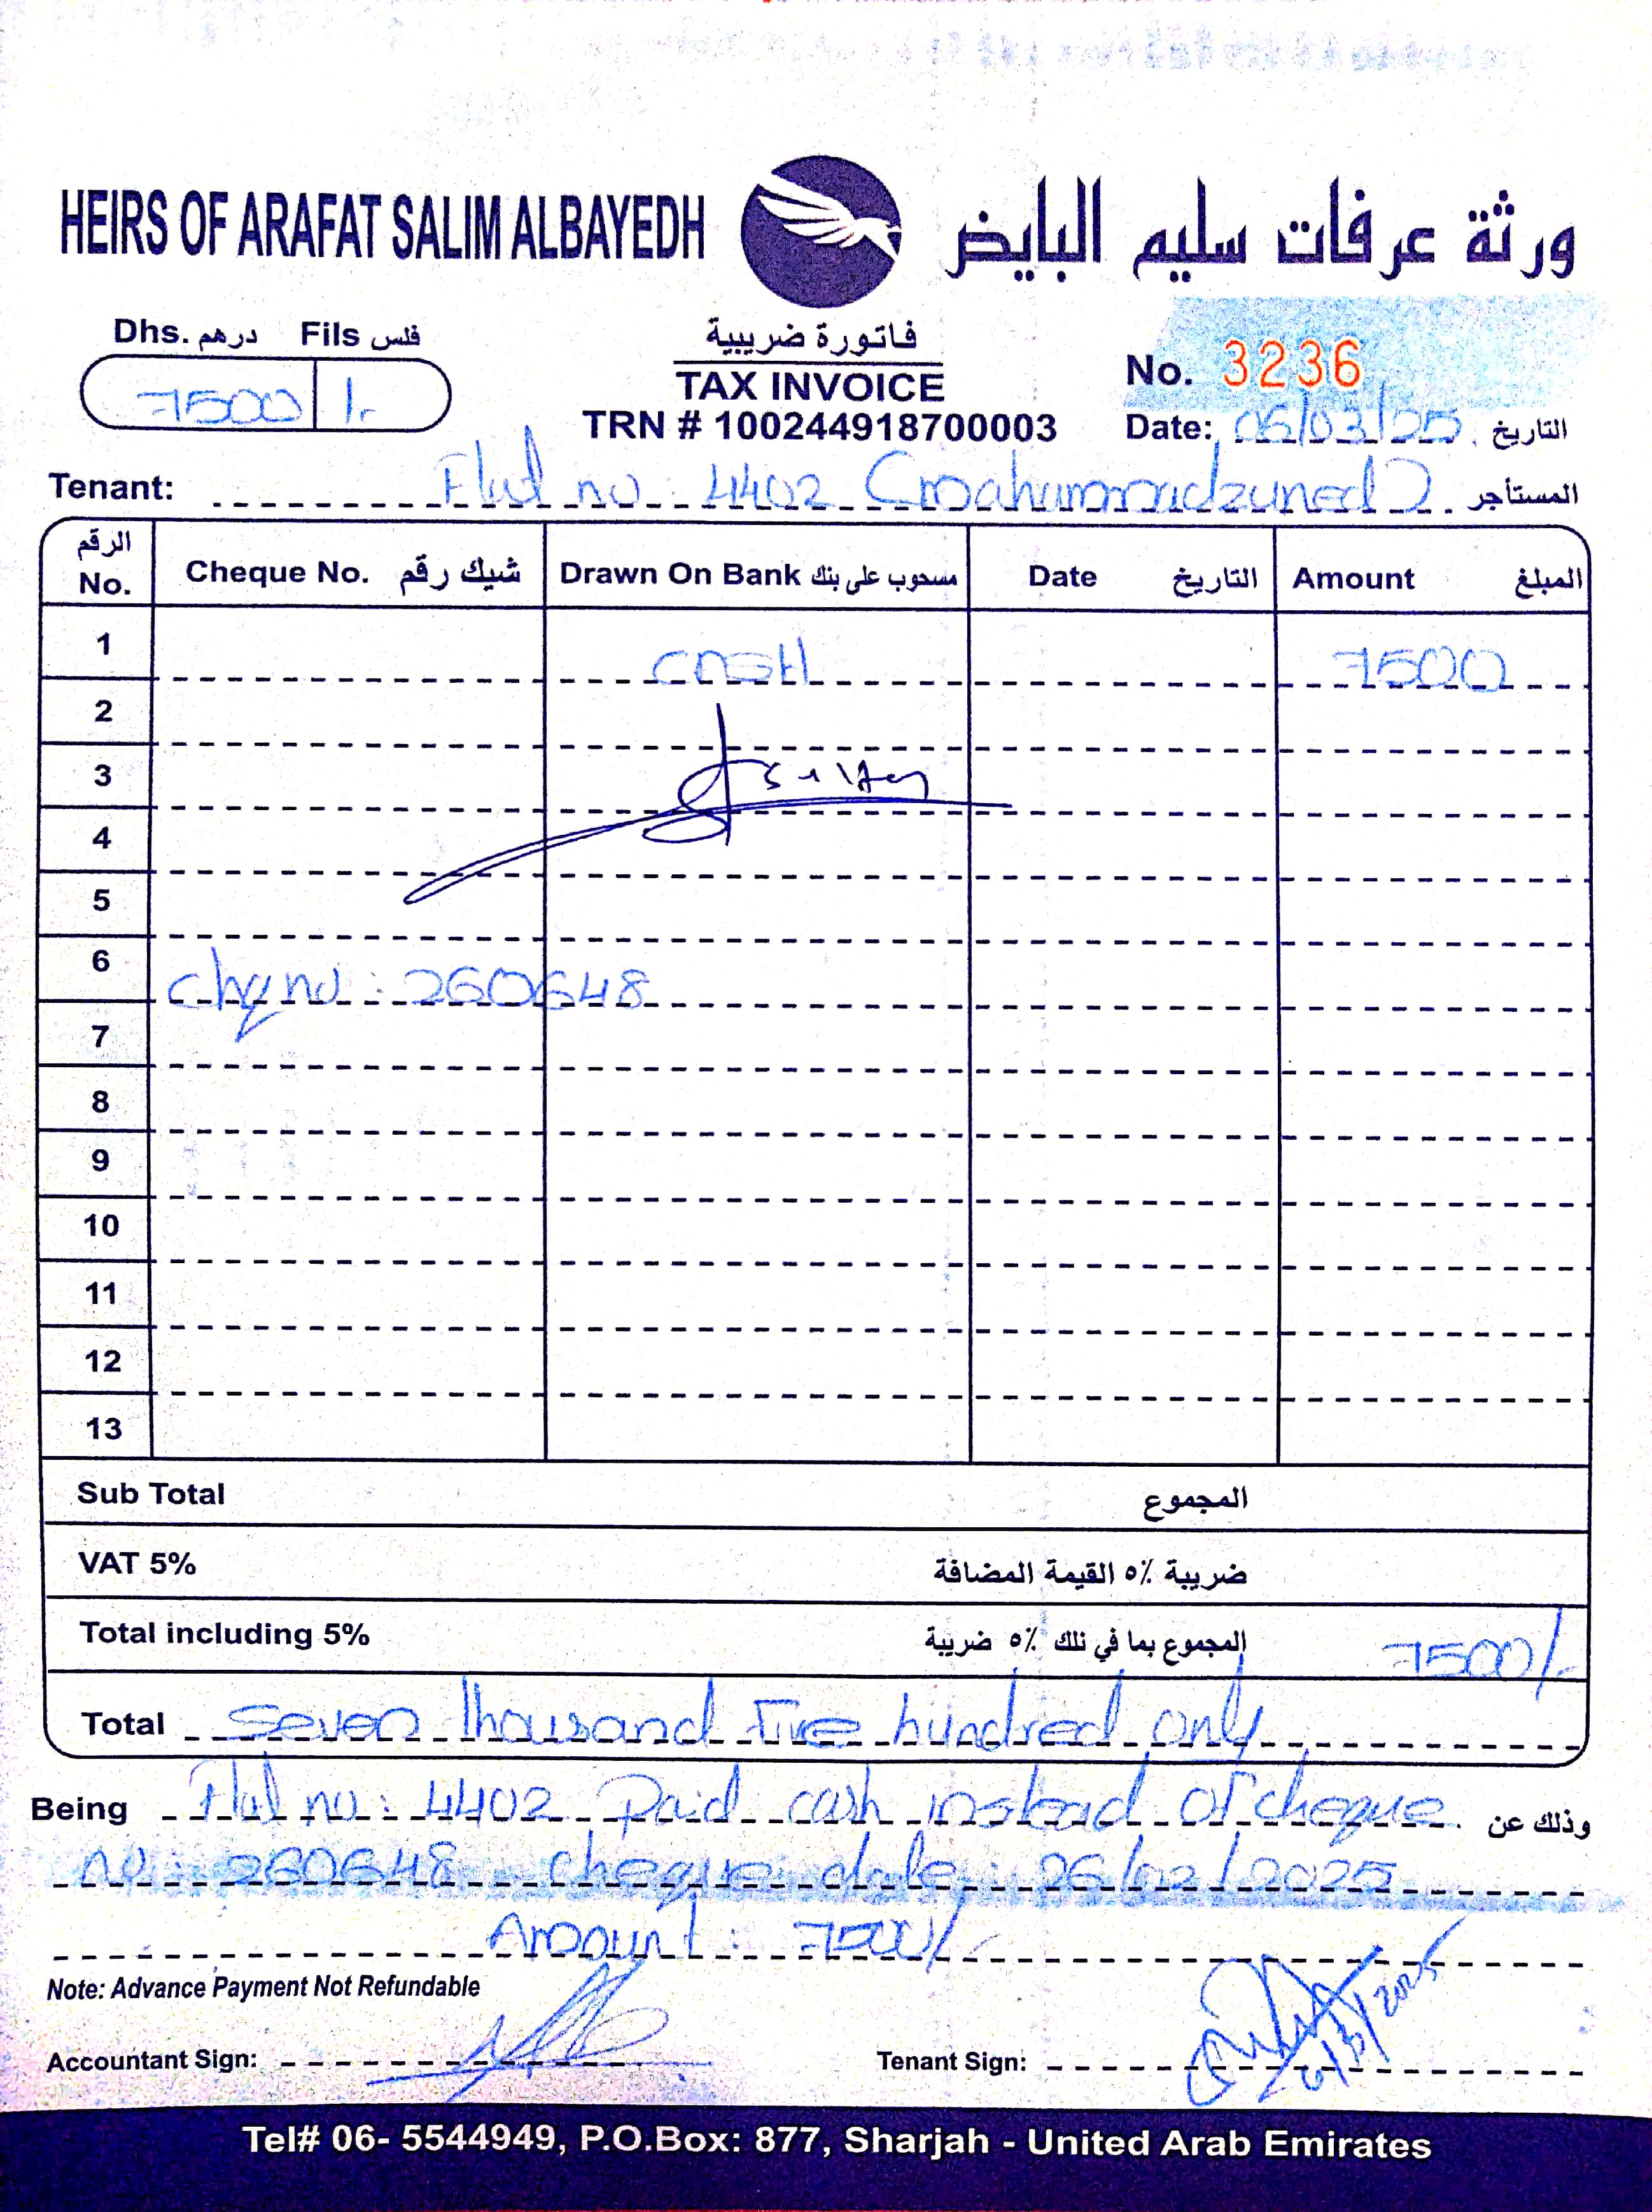 HEIRS OF ARAFAT SALIM ALBAYEDH ورثة عرفات سليم البايض
Dhs. درهم Fils فلس
7500 /-
فاتورة ضريبية
TAX INVOICE
TRN # 100244918700003
No. 3236
Date: 06/03/25 التاريخ
Tenant: Flat no: 4402 (Moahammadzuned) المستأجر
الرقم No. Cheque No. شيك رقم Drawn On Bank مسحوب على بنك Date التاريخ Amount المبلغ
1 CASH 7500
2
3
4
5
6 chq no: 260648
7
8
9
10
11
12
13
Sub Total المجموع
VAT 5% ضريبة ٥٪ القيمة المضافة
Total including 5% المجموع بما في ذلك ٥٪ ضريبة 7500/-
Total Seven thousand Five hundred only
Being Flat no: 4402 Paid cash instead of cheque وذلك عن
no: 260648 cheque date: 26/02/2025
Amount: 7500/-
Note: Advance Payment Not Refundable
Accountant Sign: Tenant Sign: 6/3/2025
Tel# 06- 5544949, P.O.Box: 877, Sharjah - United Arab Emirates